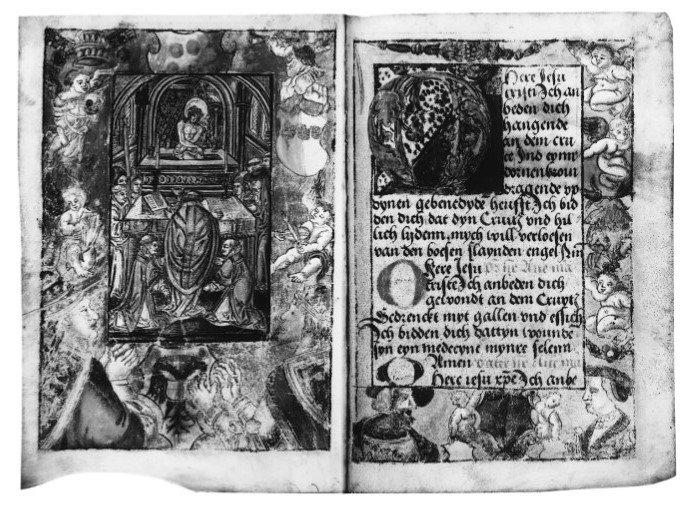 Here Jesu
cristi Jch an
beden dich
hangende
an dem cru
ce Jnd eyny
dornenkroin
draggende vp
dynen gebenedyde heufft Jch bid
den dich dat dyn Cruytz vnd hil
lich lydenn mych will verloesen
van den boesen slaynden engel
Here Jesu
criste Jch anbeden dich
gewondt an dem Cruytz
Gedrenckt myt gallen vnd essich
Jch bidden dich dattyn wounde
syn eyn medecyne mynre selenn
Amen
Here iesu xpe Jch anbe